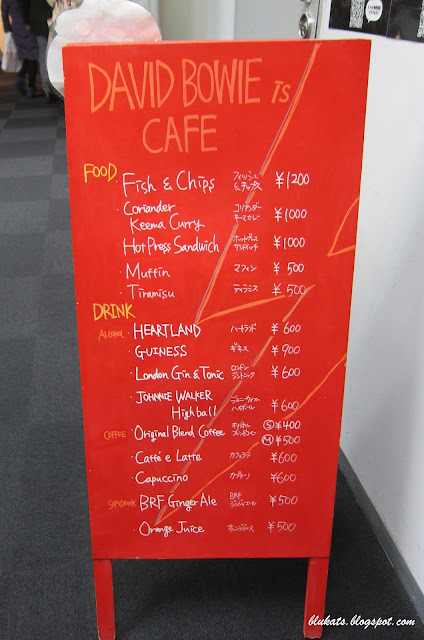 DAVID BOWIE is
CAFE
FOOD
Fish & Chips フィッシュ &チップス ¥1200
・Coriander Keema Curry コリアンダー キーマカレー ¥1000
・Hot Press Sandwich ホットプレス サンドイッチ ¥1000
・Muffin マフィン ¥500
・Tiramisu ティラミス ¥500
DRINK
ALCOHOL ・HEARTLAND ハートランド ¥600
・GUINESS ギネス ¥900
・London Gin & Tonic ロンドン ジントニック ¥600
・JOHNNIE WALKER Highball ジョニーウォーカー ハイボール ¥600
COFFEE ・Original Blend Coffee オリジナル ブレンドコーヒー Ⓢ¥400
Ⓜ¥500
・Caffé e Latte カフェラテ ¥600
・Capuccino カプチーノ ¥600
・BRF Ginger Ale BRF ジンジャエール ¥500
・Orange Juice オレンジジュース ¥500
blukats.blogspot.com